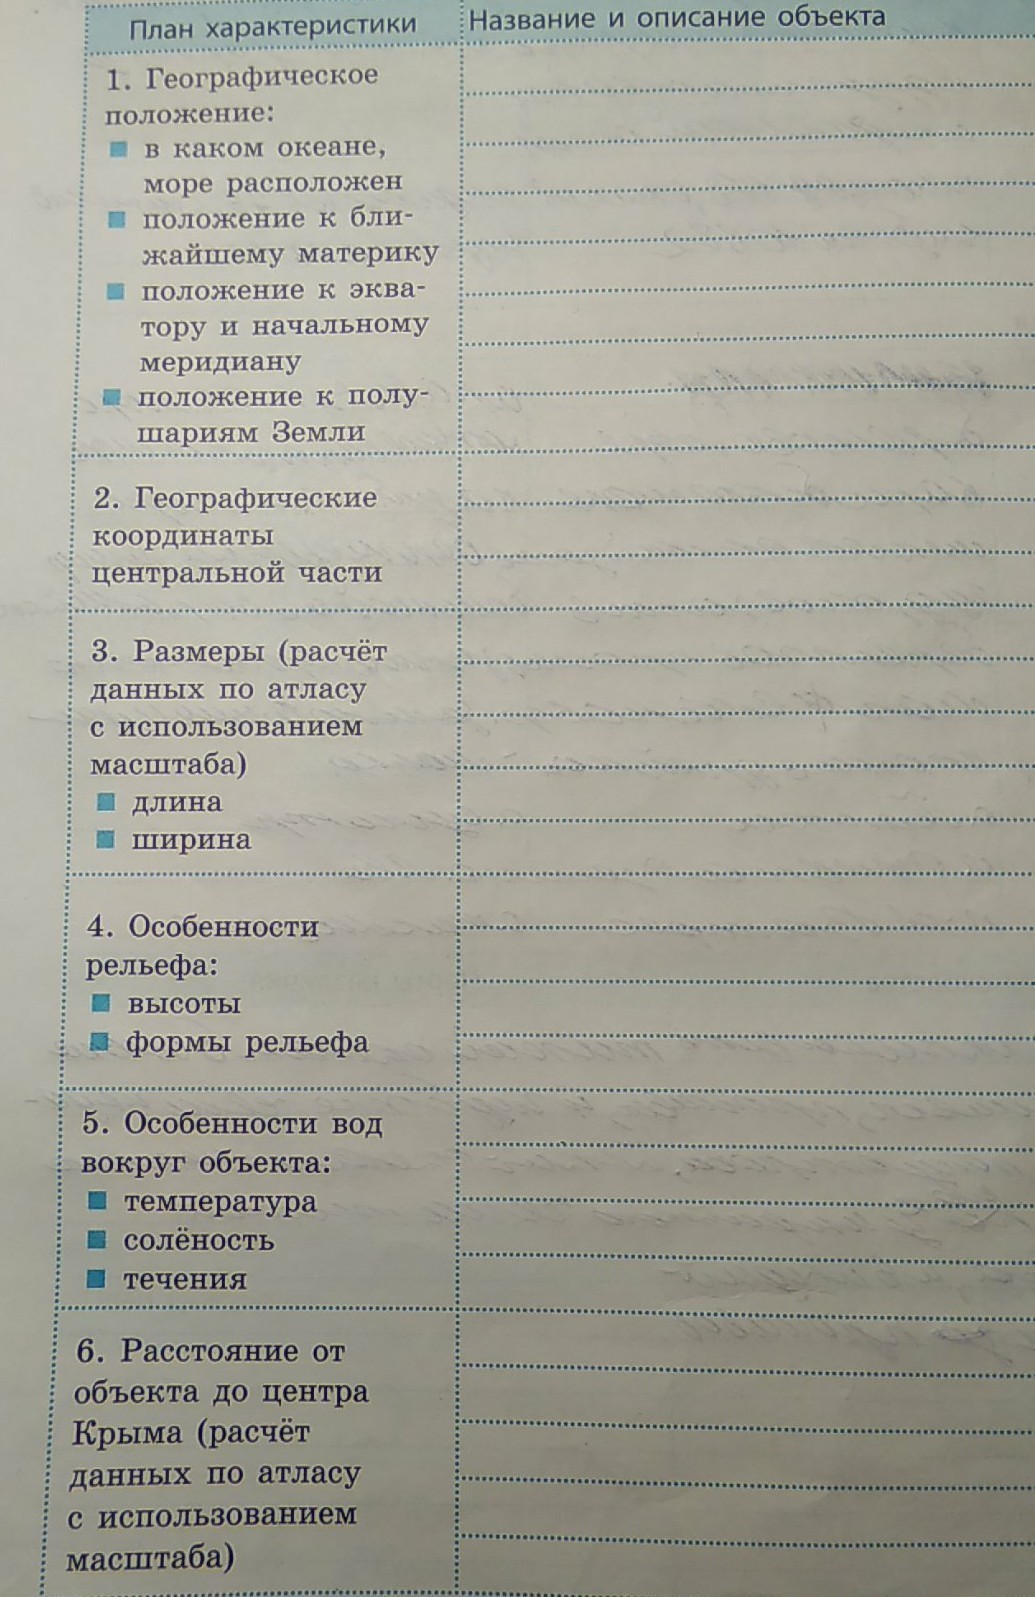 План характеристики
Название и описание объекта
1. Географическое
положение:
в каком океане,
море расположен
положение к бли-
жайшему материку
положение к эква-
тору и начальному
меридиану
положение к полу-
шариям Земли
2. Географические
координаты
центральной части
3. Размеры (расчёт
данных по атласу
с использованием
масштаба)
длина
ширина
4. Особенности
рельефа:
высоты
формы рельефа
5. Особенности вод
вокруг объекта:
температура
солёность
течения
6. Расстояние от
объекта до центра
Крыма (расчёт
данных по атласу
с использованием
масштаба)